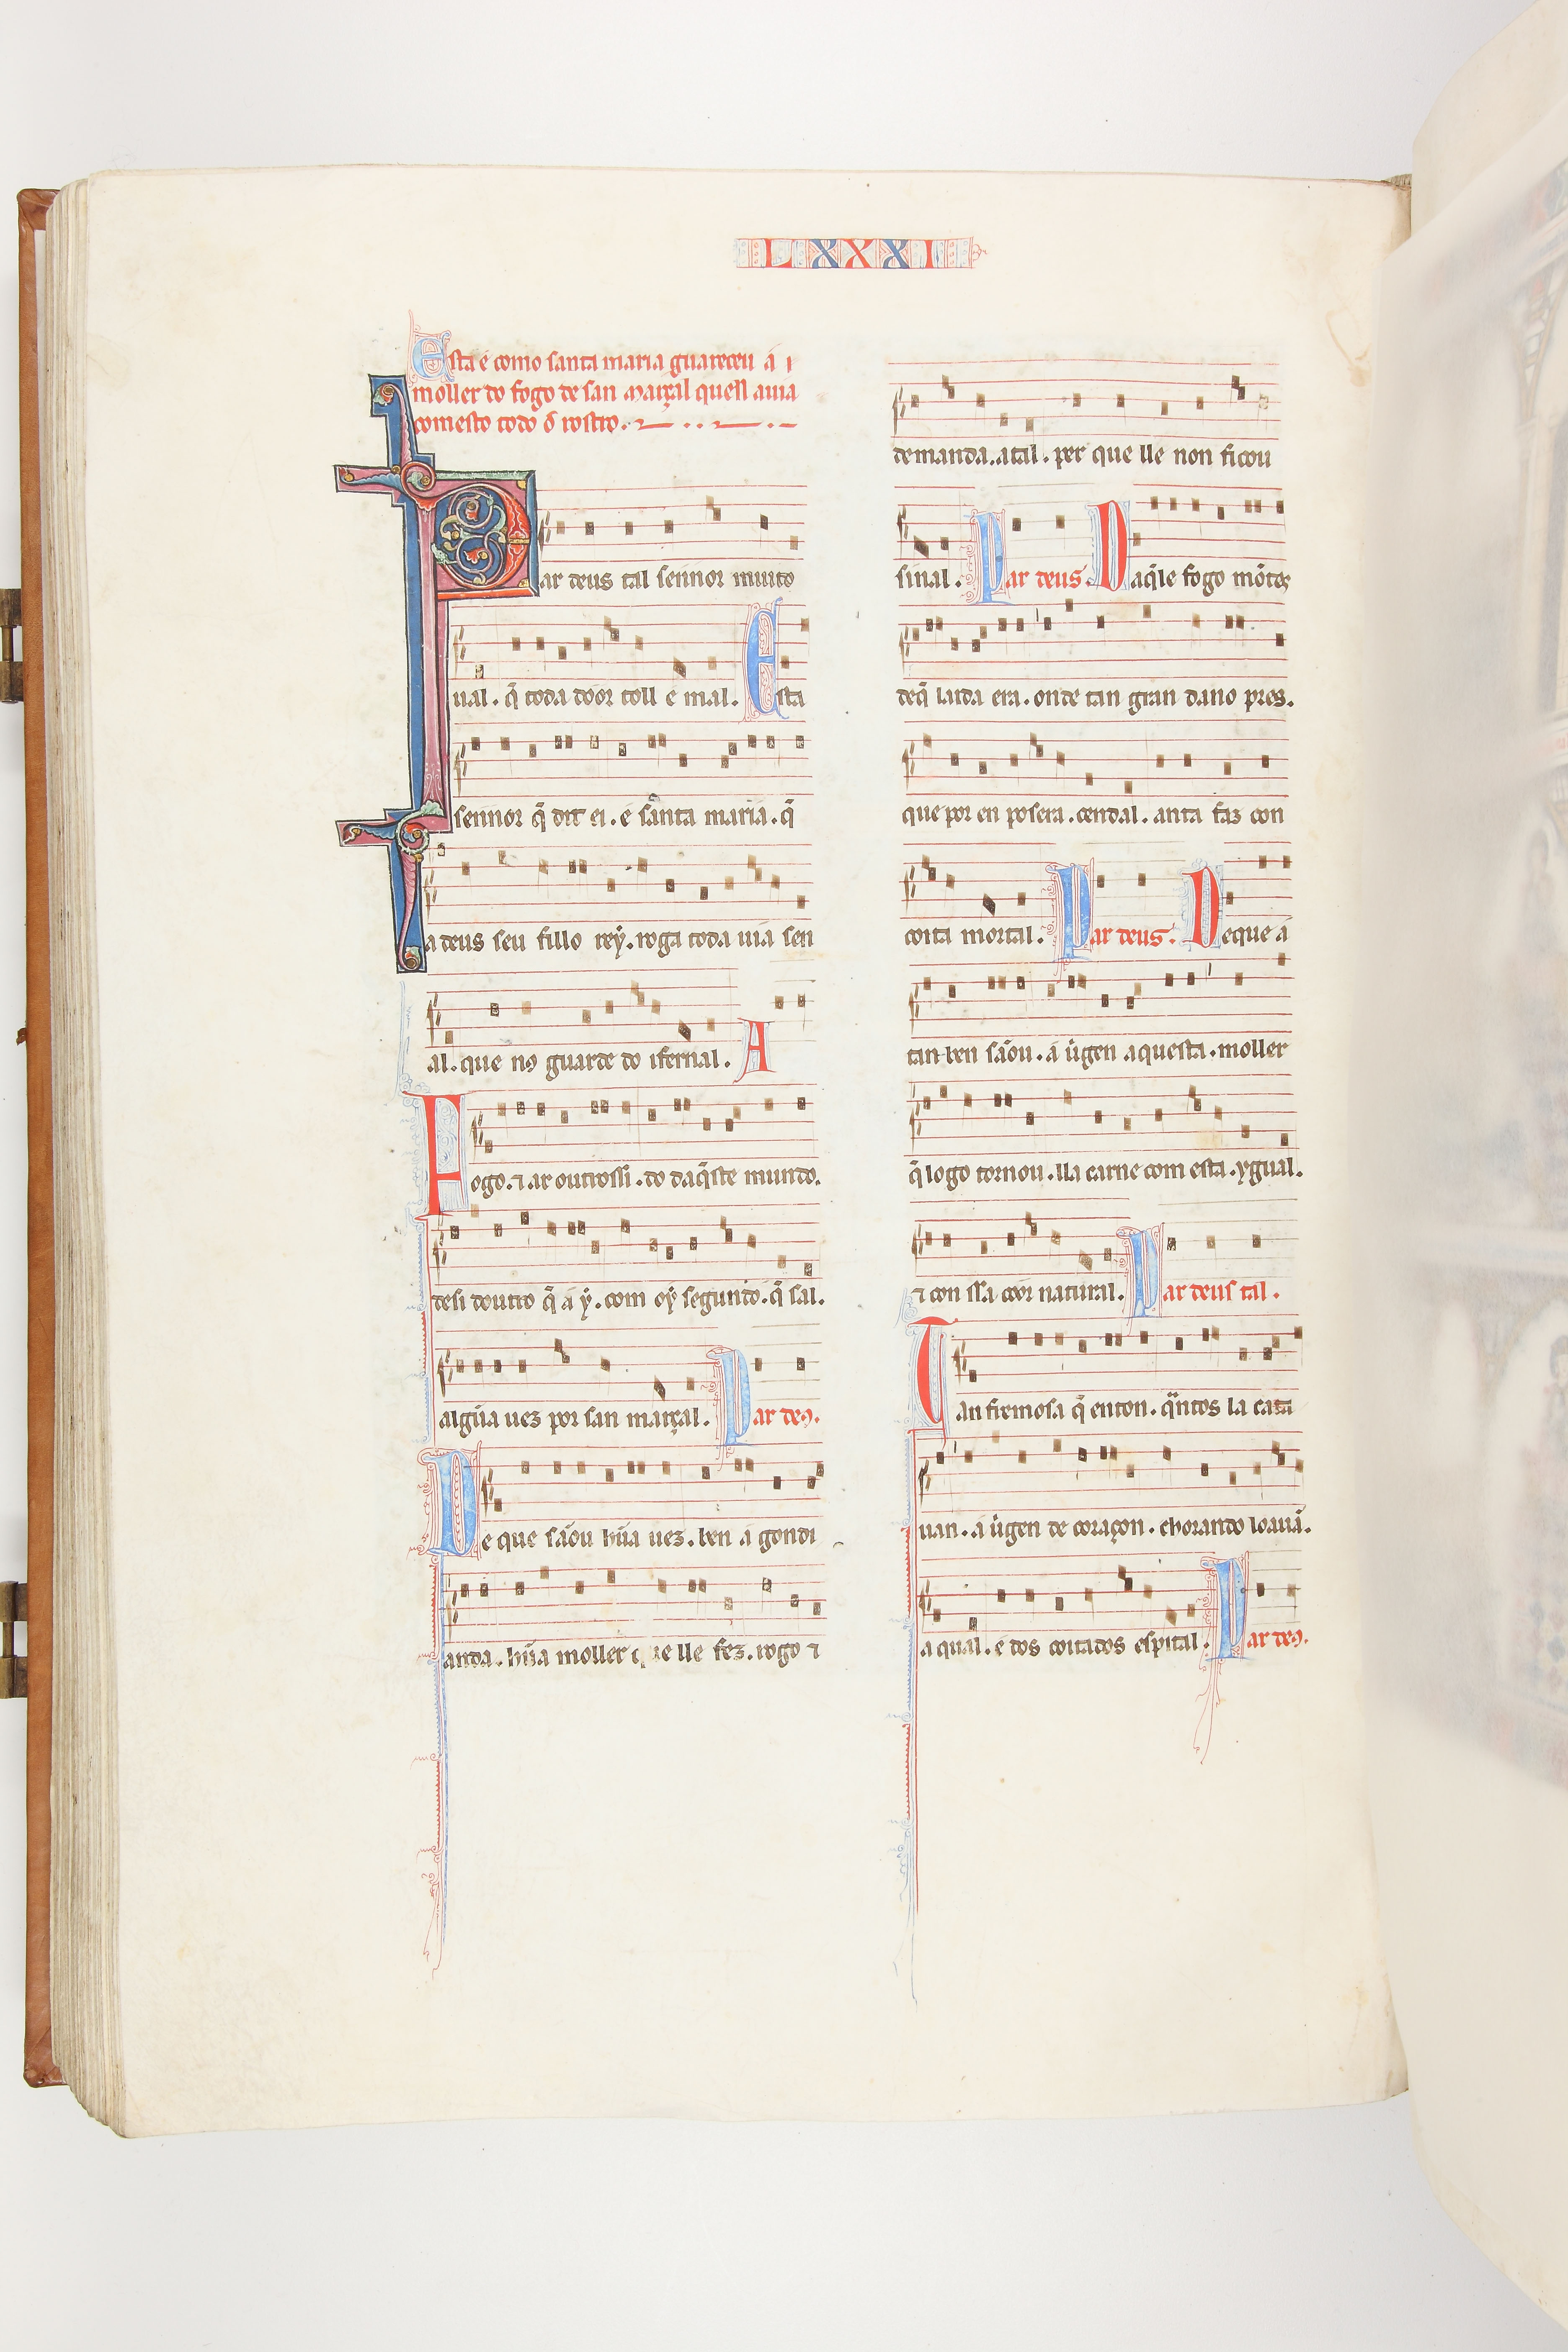 LXXXI
Esta é como santa maria guareceu á i
moller do fogo de san marçal quell auia
comesto todo o rostro.
Par deus tal sennor muito
ual. q̄ toda door toll e mal. Esta
sennor q̄ dit ei. é santa maria. q̄
a deus seu fillo reẏ. roga toda uia sen
al. que nꝯ guarde do ifernal. A
Fogo. ⁊ ar outrossi. do daq̄ste mundo.
desi doutro q̄ á ẏ. com oẏ segundo. q̄ sal.
algũa uez por san marçal. Par deꝯ.
De que sãou hũa uez. ben á gondi
anda. hũa moller que lle fez. rogo ⁊
demanda. atal. per que lle non ficou
sinal. Par deus. Daq̄le fogo mõtes
deq̄ layda era. onde tan gran dano pres.
que por en posera. cendal. anta faz con
coita mortal. Par deus. De que á
tan ben sãou. á uirgen aquesta. moller
q̄ logo tornou. lla carne com esta. ygual.
⁊ con ssa coor natural. Par deus tal.
Tan fremosa q̄ enton. q̄ntos la cata
uan. a uirgen de coraçon. chorando loauã.
a qual. é dos coitados espital. Par deꝯ.